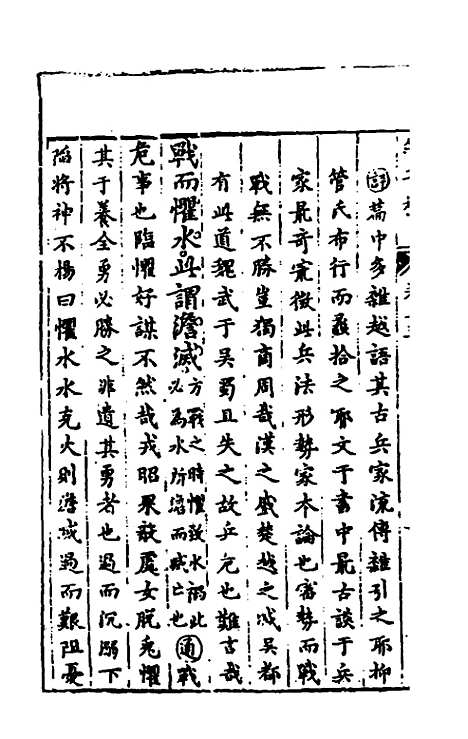 評篇中多雜越語其古兵家流傳雜引之耶抑
管氏布行而蠡拾之耶文于書中最古談于兵
家最奇寔微此兵法形勢家本論也審勢而戰
戰無不勝豈獨商周哉漢之威楚越之滅吳都
有此道魏武于吳蜀且失之故兵危也難言哉
戰而懼水此謂澹滅方戰之時懼致水禍此必為水所淹而滅亡也通戰
危事也臨懼好謀不然哉戎昭果毅處女脫兔懼
其于養全勇必勝之非遺其勇者也過而沉溺下
陷將神不揚曰懼水水克火則澹滅過而艱阻憂